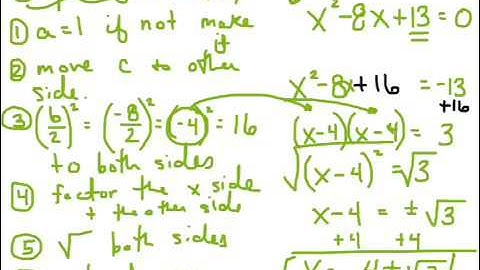 ① a=1 if not make it
② move c to other side.
③ (b/2)² = (-8/2)² = (-4)² = 16
to both sides
④ factor the x side
+ the other side
⑤ √ both sides
x²-8x+13=0
x²-8x+16 = -13
+16
(x-4)(x-4) = 3
√(x-4)² = √3
x-4 = ±√3
+4 +4
x = 4±√3